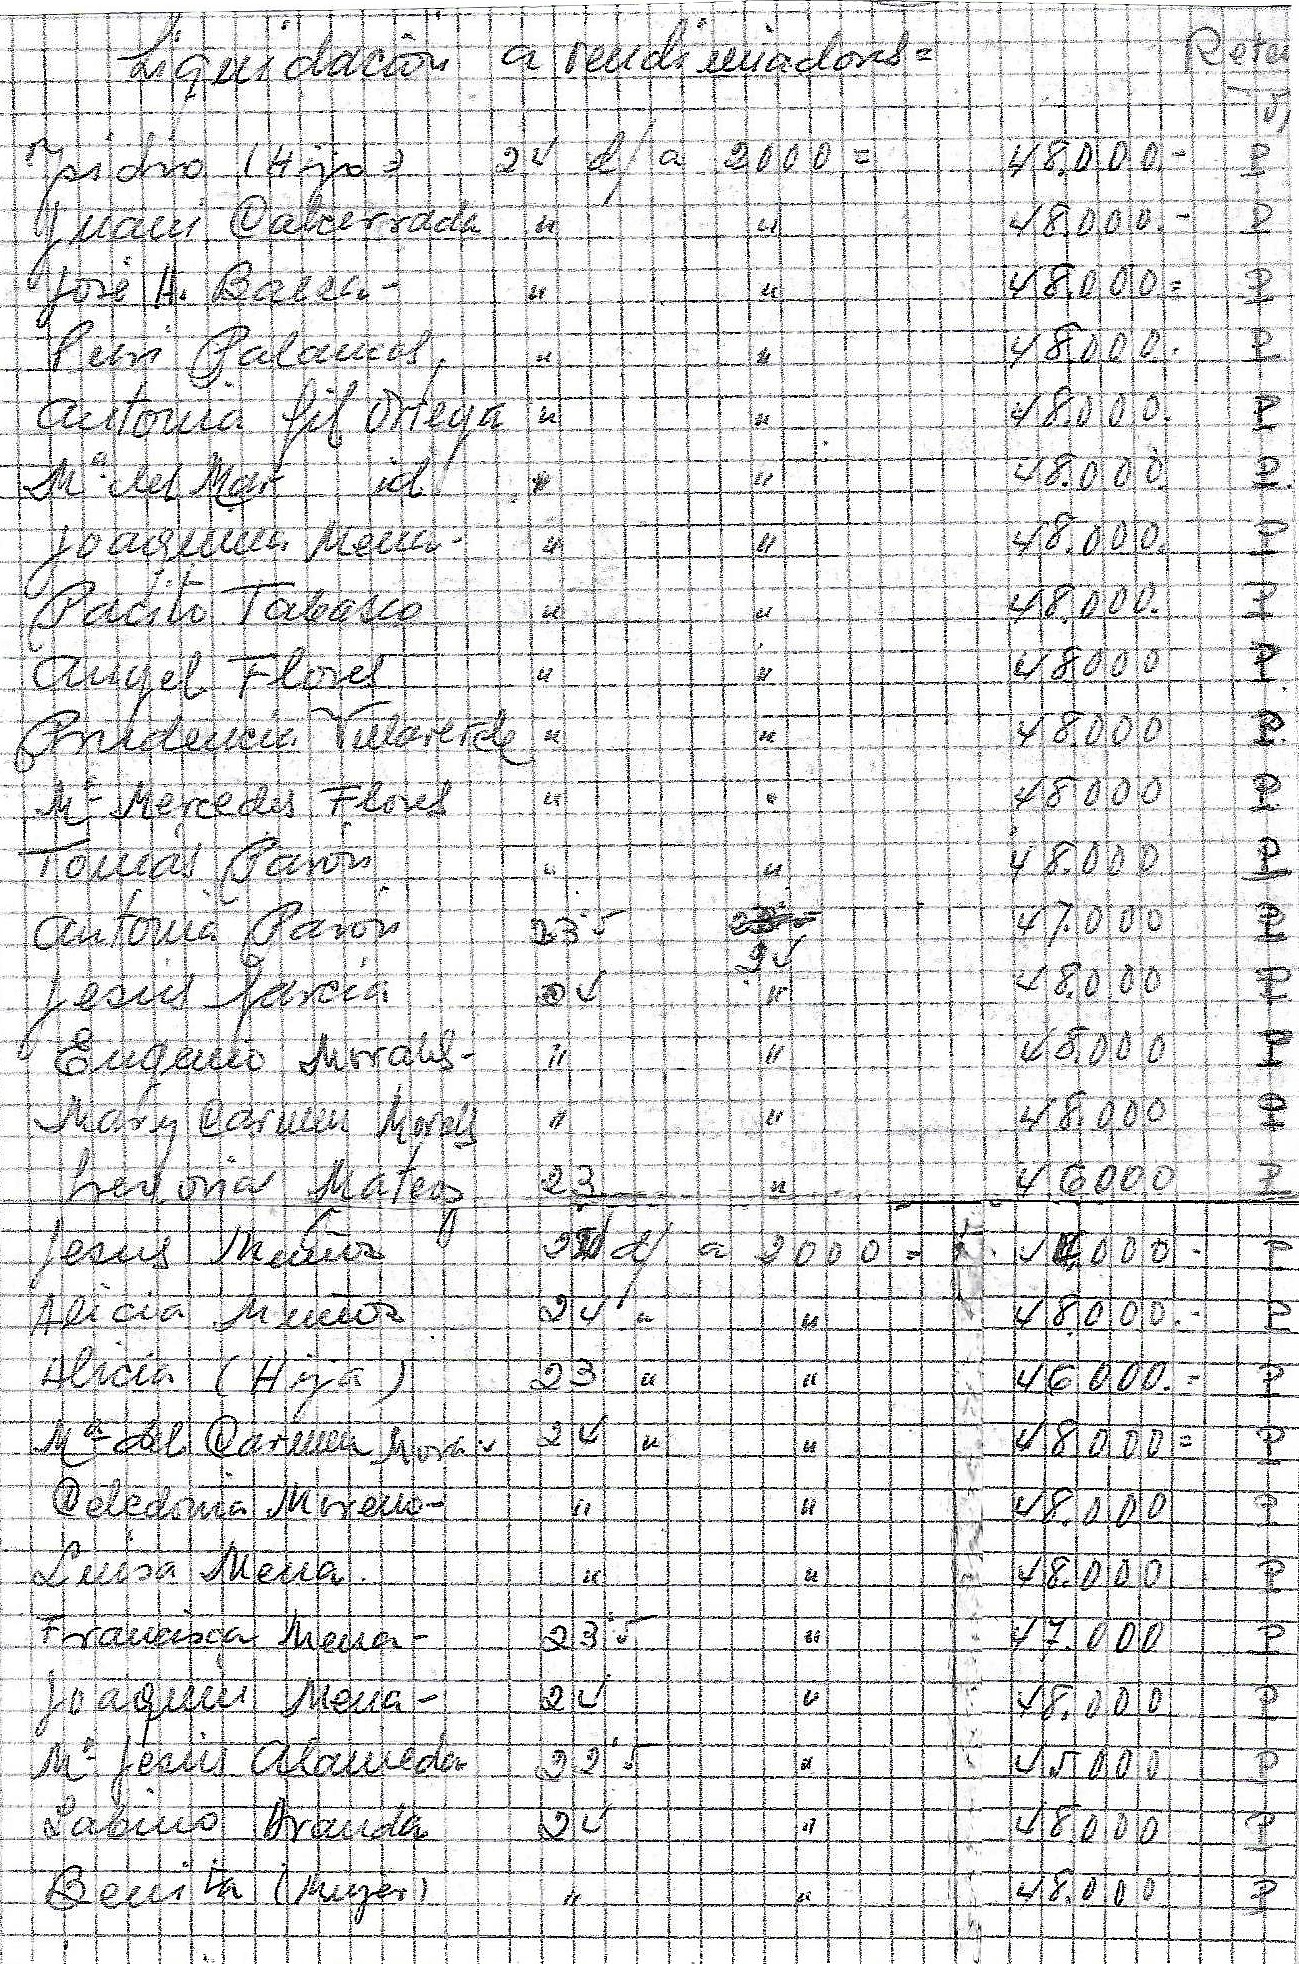 Liquidación a vendimiadores = Reten
Ysidro (Hijo) 24 d/ a 2000 = 48.000.- P
Juani Calcerrada " " 48.000.- P
José H. Baeza - " " 48.000 = P
Puri Palancos, " " 48.000. P
Antonia Gil Ortega " " 48.000. P
Mª del Mar id " " 48.000. P.
Joaquina Mena - " " 48.000. P
Pacito Tabasco " " 48.000. P
Angel Flores " " 48.000 P.
Prudencia Villaverde " " 48.000 P.
Mª Mercedes Flores " " 48.000 P
Tomás Pavón " " 48.000 P
Antonia Pavón 23'5 47.000 P
24
Jesús García 24 " 48.000 P
Eugenio Morales - " " 48.000 P
Mary Carmen Morales " " 48.000 P
Gregoria Mateos 23 " 46000 P
Jesús Muñoz d/ a 2000 = .000 - P
Alicia Muñoz 24 " " 48.000.- P
Alicia (Hija) 23 " " 46 000. = P
Mª del Carmen Mora - 24 " " 48.000 = P
Celedonia Moreno - " " 48.000 P
Luisa Mena. " " 48.000 P
Francisca Mena - 23'5 " 47.000 P
Joaquin Mena - 24 " 48.000 P
Mª Jesús Alameda 22'5 " 45000 P
Sabino Aranda 24 " 48000 P
Benita (Mujer) " " 48.000 P